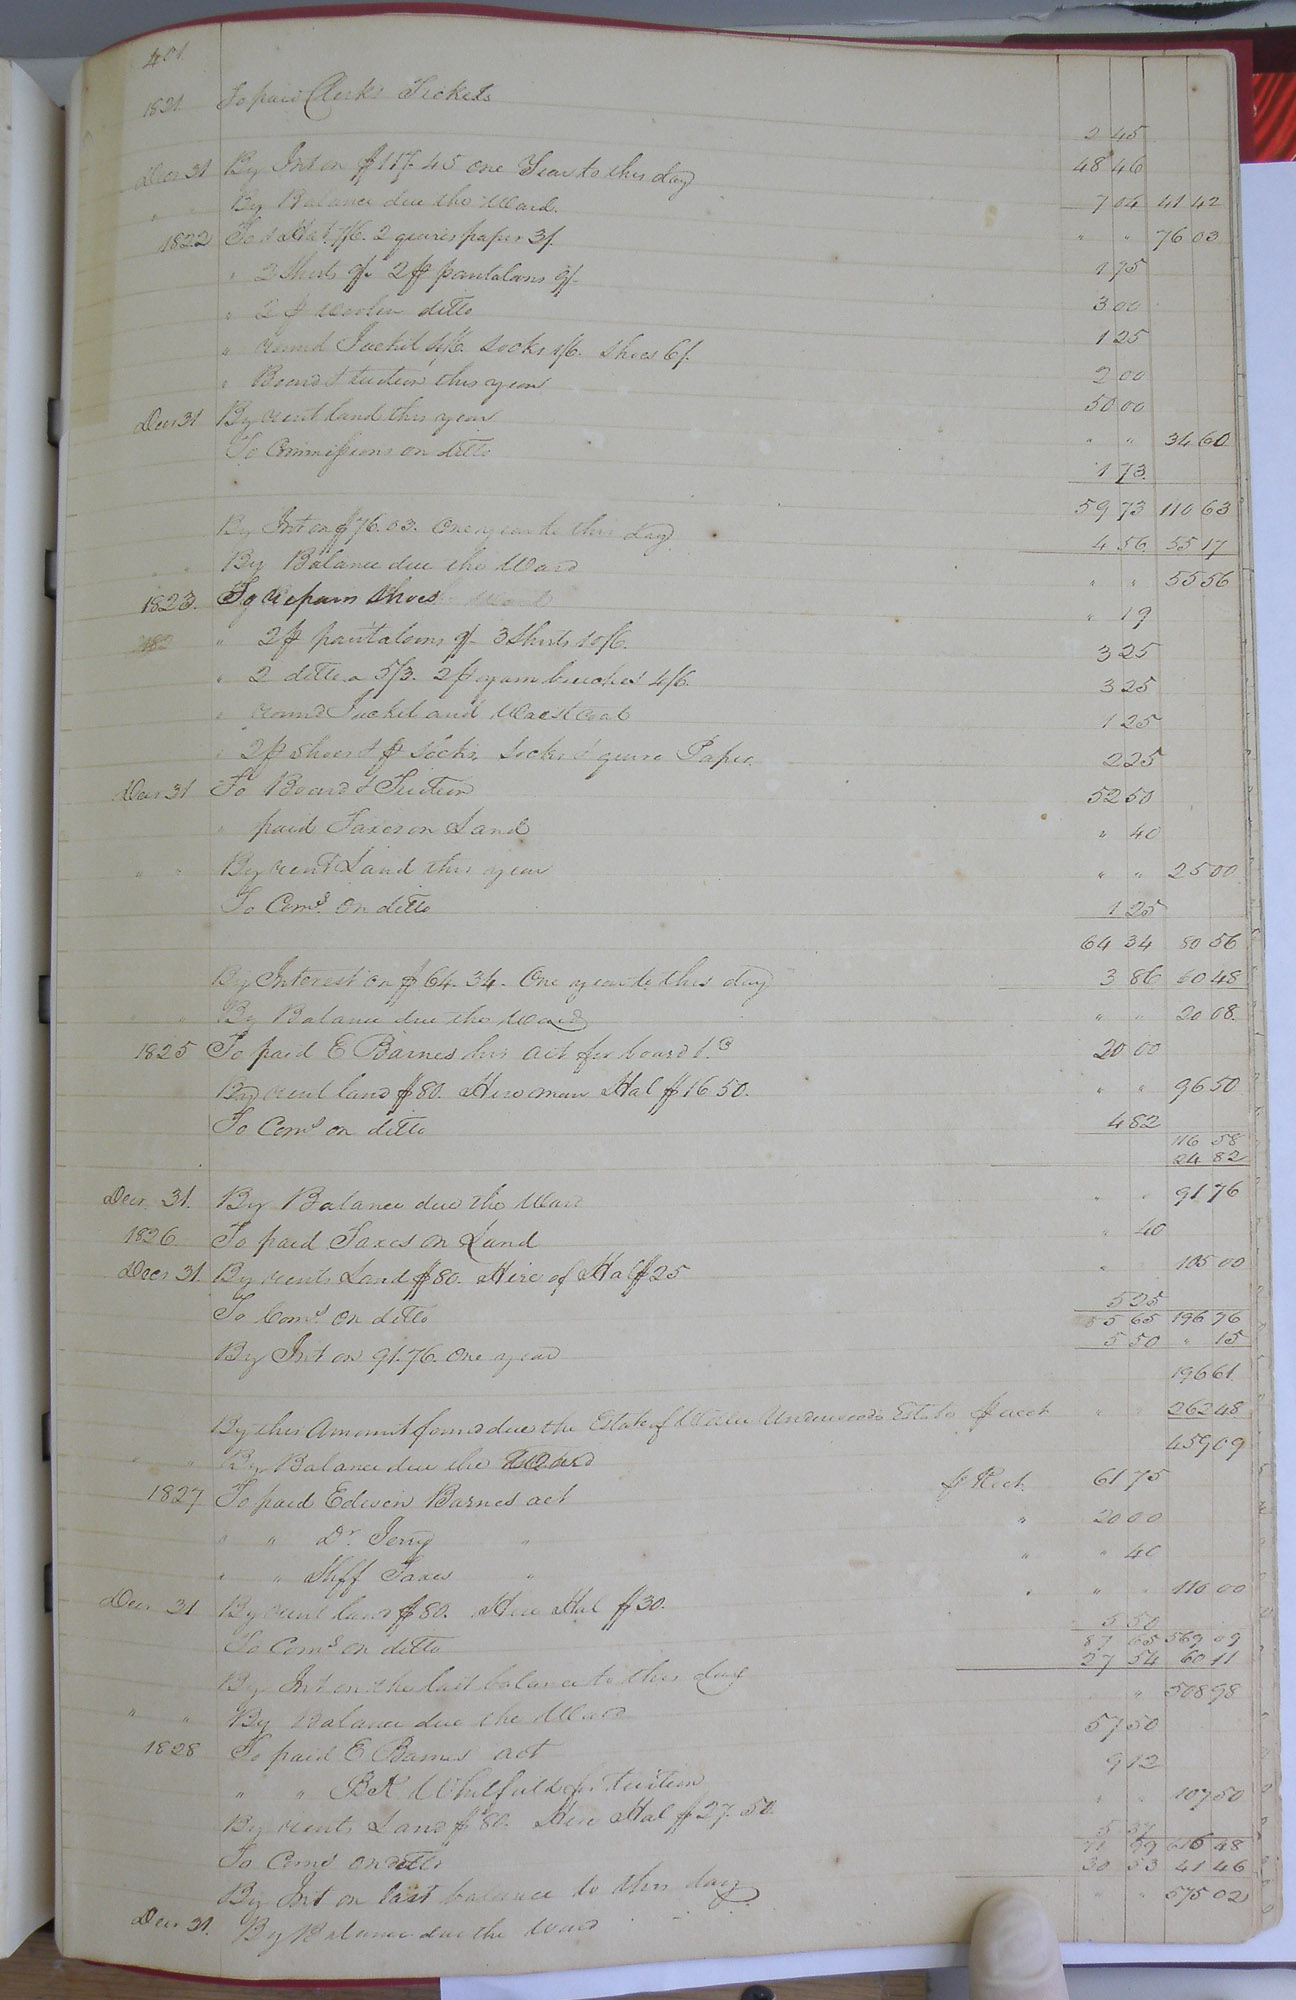 401.
1821 To paid Clerks Tickets 2 45
48 46
Dec 31 By Int on $117.45 one Year to this day 7 04 41 42
" " By Balance due the Ward. " " 76 03
1822 To 1 Hat 7/6. 2 quires paper 3/. 1 75
" 2 Shirts 9/. 2 pr pantaloons 9/. 3 00
" 2 pr woolen ditto 1 25
" round Jacket 4/6. Socks 1/6. Shoes 6/. 2 00
" Board & tuition this year 50 00
Dec 31 By rent land this year " " 34 60
To Commissions on ditto 1 73
59 73 110 63
By Int on $76.03. One year to this day 4 56 55 17
" " By Balance due the Ward " " 55 56
1823. To repairs Shoes " 19
" 2 pr pantaloons 9/. 3 Shirts 10/6. 3 25
" 2 ditto a 5/3. 2 pr yarn breeches 4/6. 3 25
" round Jacket and Waistcoat 1 25
" 2 pr Shoes & pr Socks, Socks & quire Paper. 2 25
Dec 31 To Board & Tuition 52 50
" paid Taxes on Land " 40
" " By rent Land this year " " 25 00
To Coms. on ditto 1 25
64 34 80 56
By Interest on $64.34. One year to this day 3 86 60 48
" " By Balance due the Ward " " 20 08.
1825 To paid E Barnes his act for board &c 20 00
By rent land $80. Hire man Hal $16 50. " " 96 50
To Coms on ditto 4 82
116 58
24 82
Dec. 31. By Balance due the Ward " " 91 76
1826 To paid Taxes on Land " 40
Dec 31. By rents Land $80. Hire of Hal $25 " 105 00
To Coms on ditto 5 25
5 65 196 76
By Int on 91.76. One year 5 50 " 15
196 61
By this Amount found due the Estate of Underwoods Estate pr acct " " 262 48
" " By Balance due the Ward 459 09
1827 To paid Edwin Barnes act pr Rect. 61 75
" " Dr. Terry " " 20 00
" " Shff Taxes " " " 40
Dec. 31 By rent land $80. Hire Hal $30. " " " 110 00
To Coms on ditto 5 50
87 65 569 09
By Int on the last balance to this day 27 54 60 11
" " By Balance due the Ward " 508 98
1828 To paid E Barnes act 57 50
" " B K Whitfield for Tuition 9 12
By rents Land $80. Hire Hal $27.50. " " 107 50
To Coms on ditto 5 37
71 99 616 48
By Int on last balance to this day 30 53 41 46
Dec 31. By Balance due the Ward " " 575 02